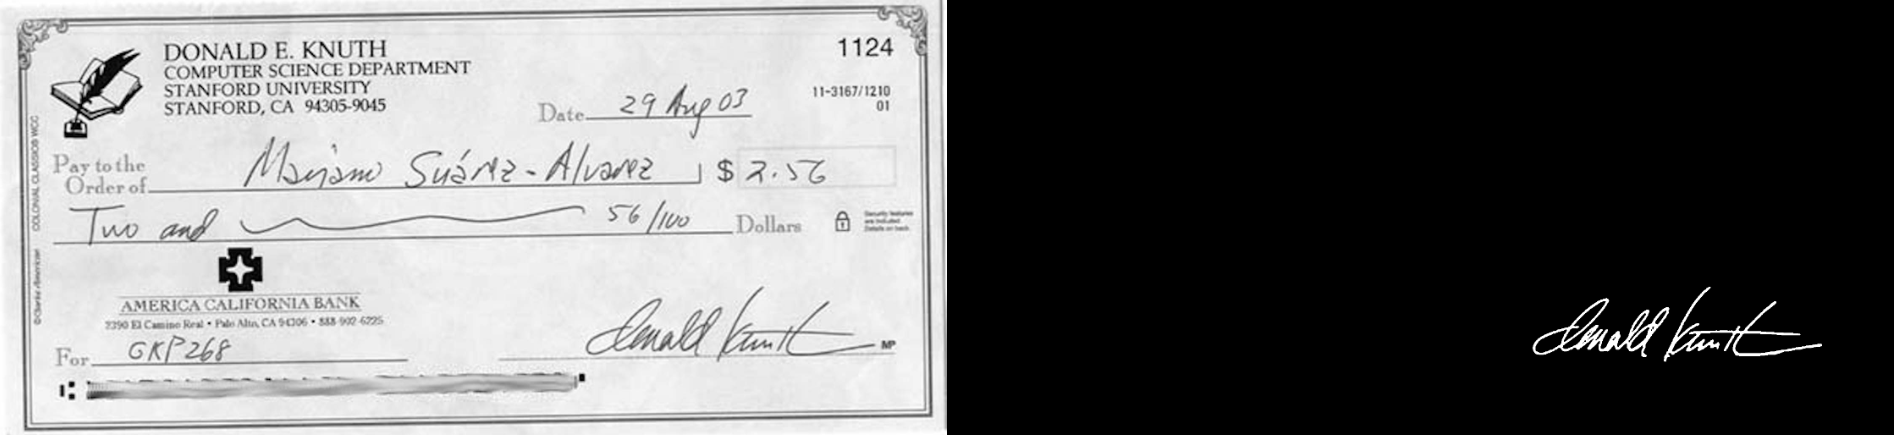 DONALD E. KNUTH
COMPUTER SCIENCE DEPARTMENT
STANFORD UNIVERSITY
STANFORD, CA 94305-9045
1124
11-3167/1210
01
Date 29 Aug 03
Pay to the
Order of Mariano Suárez-Alvarez $ 2.56
Two and 56/100 Dollars
Security features
are included.
Details on back.
AMERICA CALIFORNIA BANK
2390 El Camino Real • Palo Alto, CA 94306 • 888-902-6225
For GKP268
Donald Knuth MP
COLONIAL CLASSIC® WCC
Donald Knuth